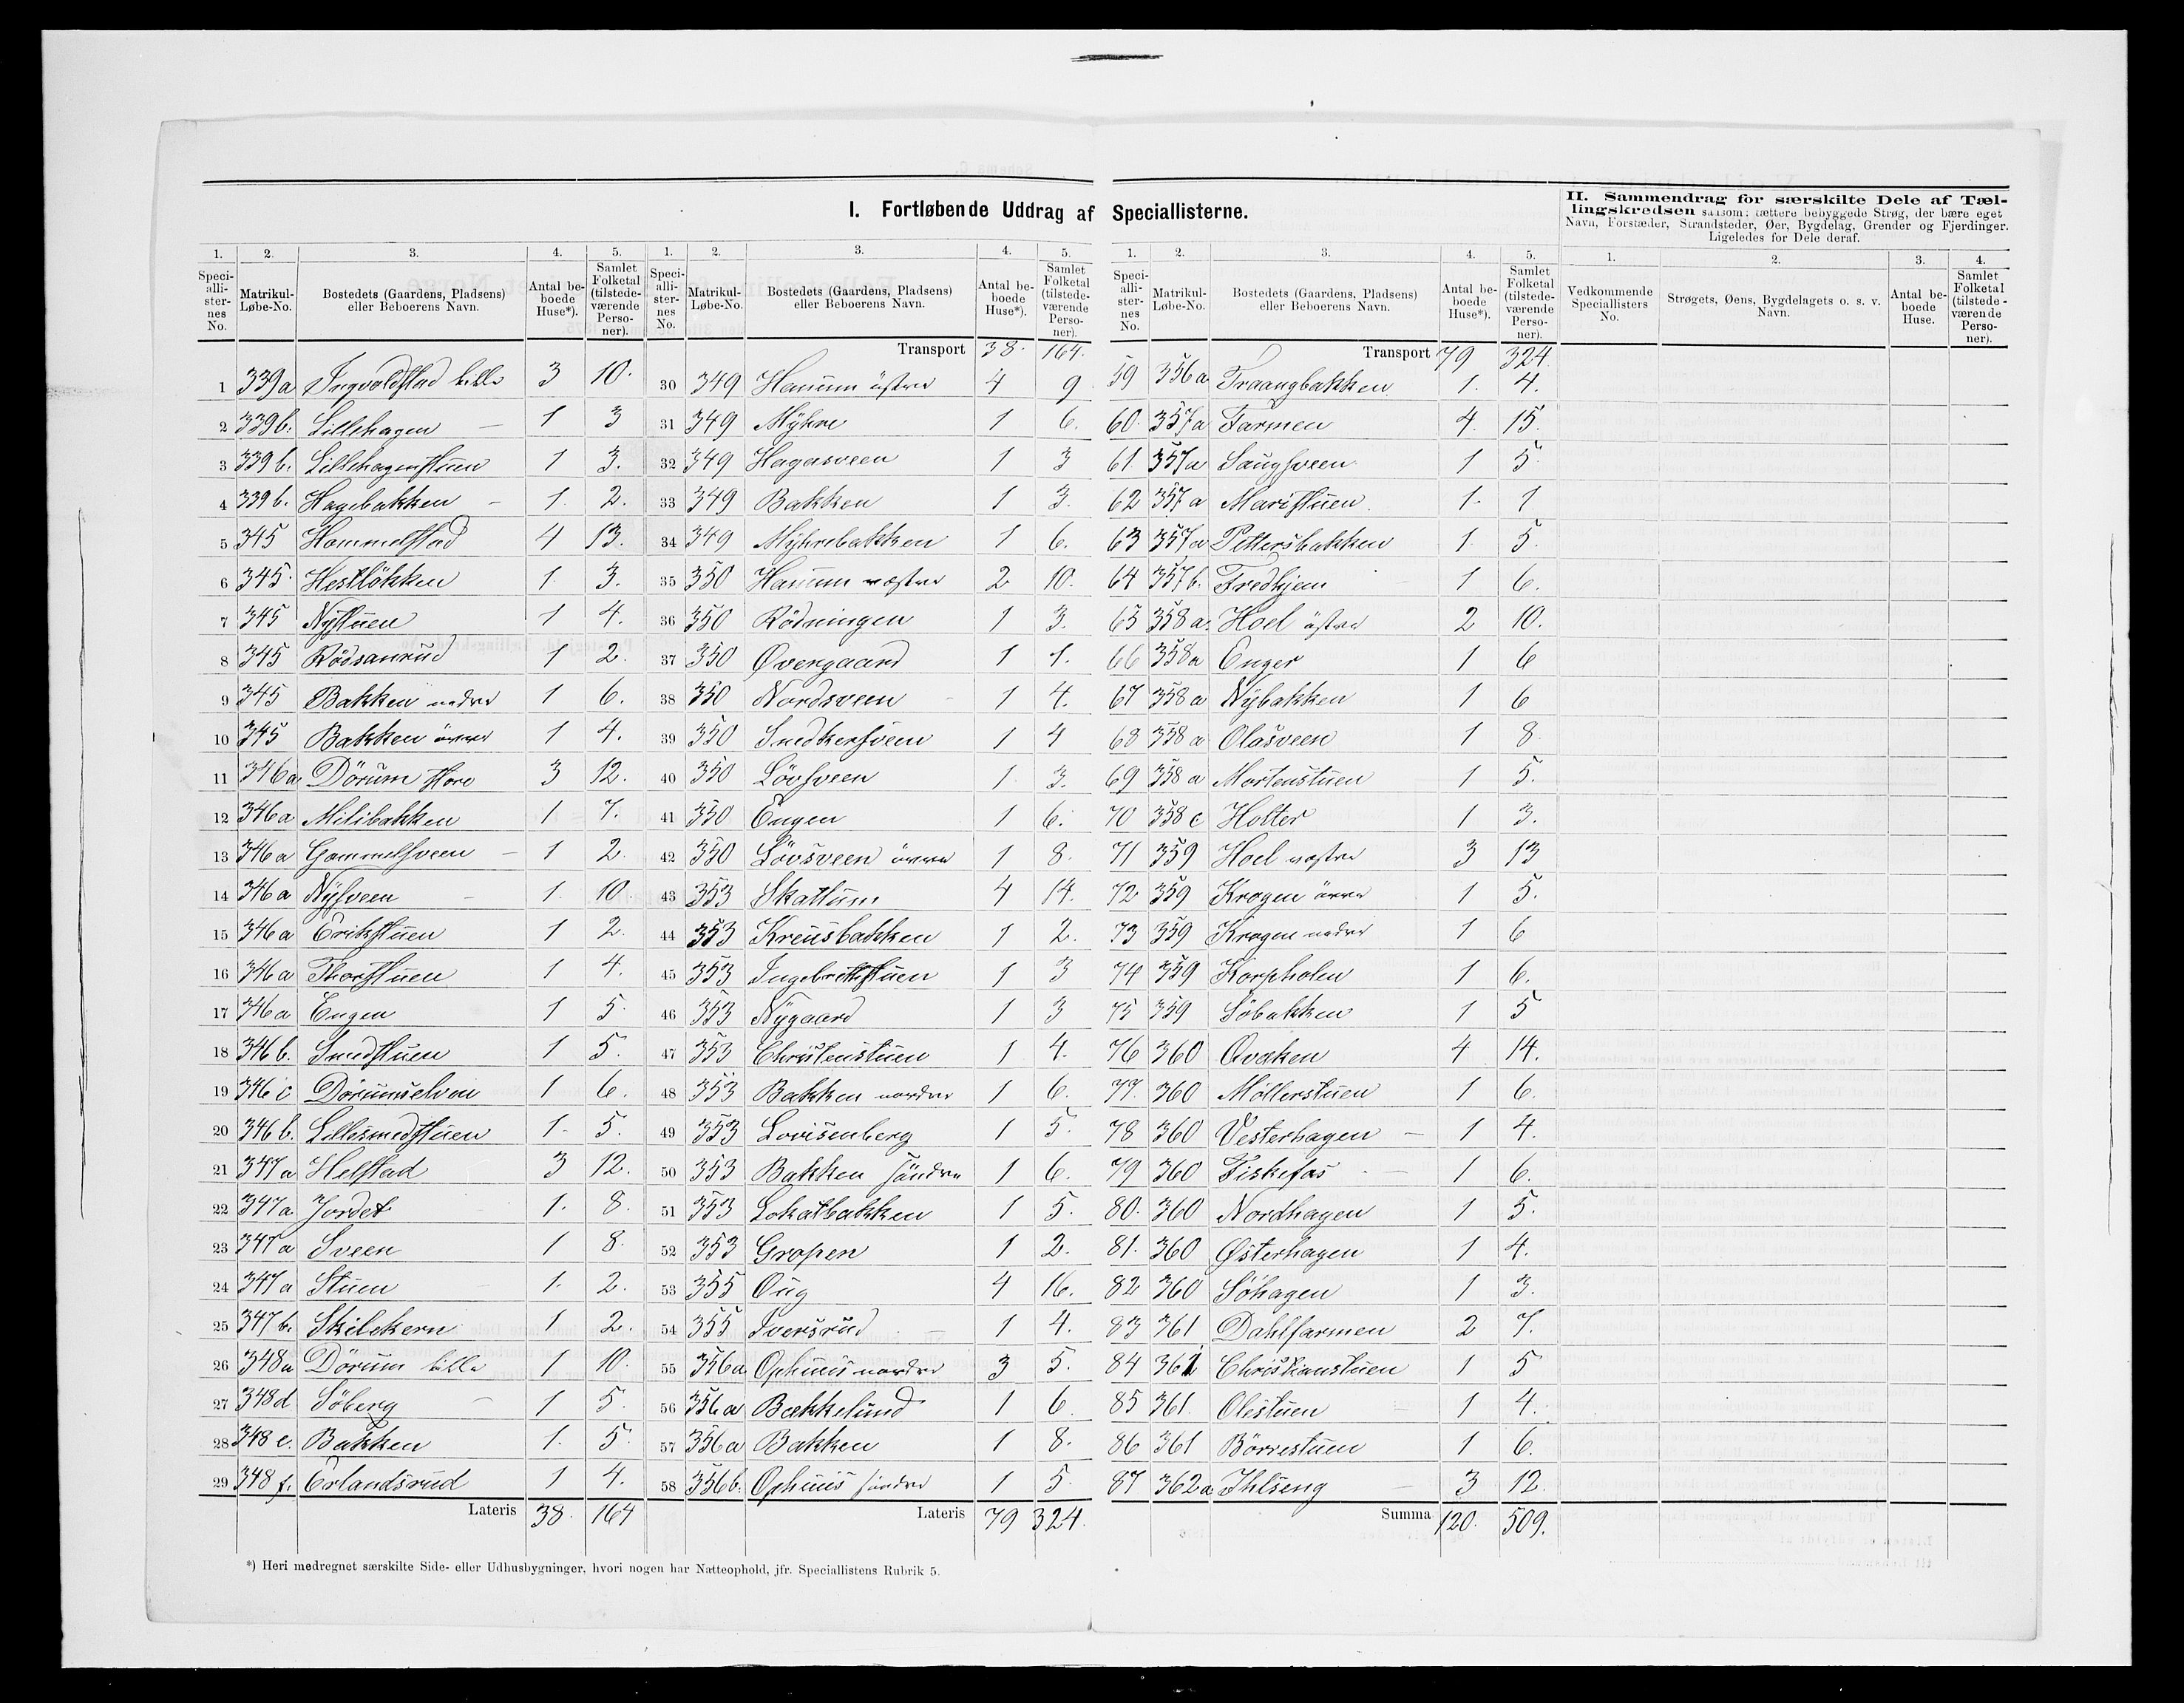 I. Fortløbende Uddrag af Speciallisterne.
II. Sammendrag for særskilte Dele af Tæl-
lingskredsen saasom: tættere bebyggede Strøg, der bære eget
Navn, Forstæder, Strandsteder, Øer, Bygdelag, Grender og Fjerdinger.
Ligeledes for Dele deraf.
1. 2. 3. 4. 5.
Speci-alli-ster-nes No. Matrikul-Løbe-No. Bostedets (Gaardens, Pladsens) eller Beboerens Navn. Antal be-boede Huse*). Samlet Folketal (tilstede-værende Perso-ner).
1 339a Ingvoldstad lille 3 10.
2 339b. Lillehagen 1 3
3 339b. Lillehagenstuen 1 3.
4 339b. Hagebakken 1 2.
5 345 Hommelstad 4 13.
6 345 Hestløkken 1 3.
7 345 Nystuen 1 4.
8 345 Rödsanrud 1 2.
9 345 Bakken nedre 1 6.
10 345 Bakken övre 1 4.
11 346a Dörum store 3 12.
12 346a Milibakken 1 7.
13 346a Gammelsveen 1 2.
14 346a Nysveen 1 10.
15 346a Erikstuen 1 2.
16 346a Thorstuen 1 4.
17 346a Engen 1 5
18 346b. Smedstuen 1 5.
19 346c Dörumselven 1 6.
20 346b. Lillesmedstuen 1 5.
21 347a Helstad 3 12.
22 347a Jordet 1. 8.
23 347a Sveen 1 8
24 347a Stuen 1. 2.
25 347b. Skilekern 1 2.
26 348a Dörum lille 1 10.
27 348d Söberg 1 5.
28 348e. Bakken 1. 5
29 348f. Erlandsrud 1 4.
Lateris 38. 164
1. 2. 3. 4. 5.
Speci-alli-ster-nes No. Matrikul-Løbe-No. Bostedets (Gaardens, Pladsens) eller Beboerens Navn. Antal be-boede Huse*). Samlet Folketal (tilstede-værende Perso-ner).
Transport 38. 164.
30 349 Hauum östre 4 9
31 349 Myhre 1 6.
32 349 Hagasveen 1 3
33 349 Bakken 1 3.
34 349 Myhrebakken 1 6.
35 350 Hauum vestre 2 10.
36 350 Rödningen 1 3.
37 350 Øvergaard 1 1.
38 350 Nordsveen 1 4.
39 350 Snedkersveen 1 4
40 350 Lövsveen 1 3.
41 350 Engen 1 6.
42 350 Lövsveen övre 1 8.
43 353 Skattum 4 14.
44 353 Kreusbakken 1 2.
45 353 Ingebretstuen 1 3
46 353 Nygaard 1 3
47 353 Christenstuen 1 4.
48 353 Bakken nordre 1 6.
49 353 Lovisenberg 1 5.
50 353 Bakken söndre 1 6.
51 353 Lokatbakken 1 5.
52 353 Gropen 1 2.
53 355 Oug 4 16.
54 355 Iversrud 1 4.
55 356a Ophuus nordre 3 5.
56 356a Bækkelund 1 6
57 356a Bakken 1 8.
58 356b. Ophuus söndre 1 5
Lateris 79 324.
1. 2. 3. 4. 5.
Speci-alli-ster-nes No. Matrikul-Løbe-No. Bostedets (Gaardens, Pladsens) eller Beboerens Navn. Antal be-boede Huse*). Samlet Folketal (tilstede-værende Perso-ner).
Transport 79 324
59 356a Traangbakken 1. 4.
60. 357a Farmen 4. 15.
61. 357a Saugsveen 1 5
62 357a Maristuen 1. 1
63 357a Pettersbakken 1 5.
64 357b. Fredhjem 1 6.
65 358a. Hoel östre 2 10.
66 358a Enger 1 6
67 358a Nybakken 1 6
68 358a Olasveen 1 8
69 358a Mortenstuen 1 5.
70 358c Holter 1 3.
71 359 Hoel vestre 3 13
72 359 Krogen övre 1 5.
73 359 Krogen nedre 1 6
74 359 Korpholen 1 6.
75 359 Söbakken 1 5
76 360 Qvæken 4 14.
77. 360 Möllerstuen 1 6.
78 360 Vesterhagen 1 4.
79 360 Fiskefas 1 6.
80. 360 Nordhagen 1 5.
81. 360 Østerhagen 1 4.
82 360 Söhagen 1 3.
83 361 Dahlfarmen 2 7.
84 361 Christianstuen 1 5
85 361. Olestuen 1 4.
86 361 Börrestuen 1 6.
87 362a Ihlseng 3 12.
Summa 120. 509.
1. 2. 3. 4.
Vedkommende Speciallisters No. Strøgets, Øens, Bygdelagets o. s. v. Navn. Antal be-boede Huse. Samlet Folketal (tilstede-værende Perso-ner).
*) Heri medregnet særskilte Side- eller Udhusbygninger, hvori nogen har Natteophold, jfr. Speciallistens Rubrik 5.